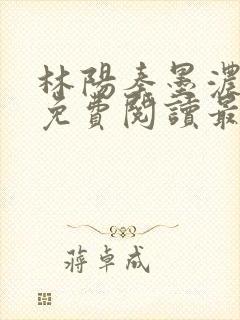 林陽秦墨濃
免費閱讀最
蔣卓成